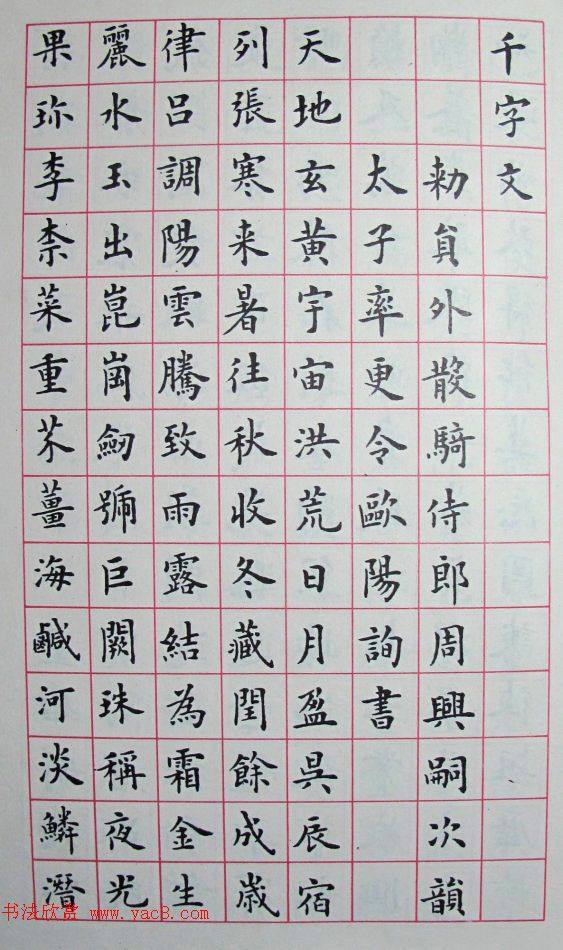 千字文
勅員外散騎侍郎周興嗣次韻
太子率更令歐陽詢書
天地玄黄宇宙洪荒日月盈昃辰宿
列張寒来暑往秋收冬藏閏餘成歳
律吕調陽雲騰致雨露結為霜金生
麗水玉出崑崗劒號巨闕珠稱夜光
果珎李柰菜重芥薑海鹹河淡鱗潛
书法欣赏 www.yac8.com